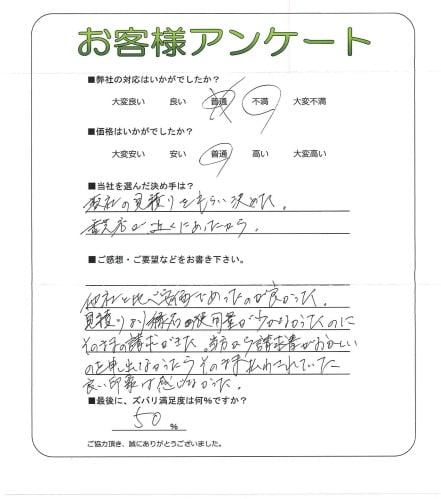 お客様アンケート
■弊社の対応はいかがでしたか?
大変良い 良い 普通 不満 大変不満
■価格はいかがでしたか?
大変安い 安い 普通 高い 大変高い
■当社を選んだ決め手は?
数社の見積りをもらい決めた。
貴店が近くにあったから。
■ご感想・ご要望などをお書き下さい。
他社と比べ安価であったのが良かった。
見積りより縁石の使用量が少なかったのに
そのままの請求がきた。当方から請求書がおかしい
のを申し出なかったらそのまま払わされていた
良い印象は感じなかった。
■最後に、ズバリ満足度は何%ですか?
50 %
ご協力頂き、誠にありがとうございました。